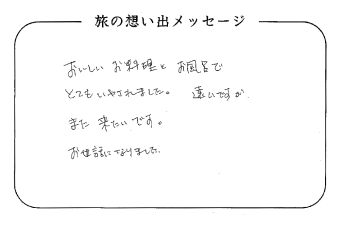 旅の想い出メッセージ
おいしい お料理と お風呂で
とても いやされました。 遠いですが
また 来たいです。
お世話になりました。